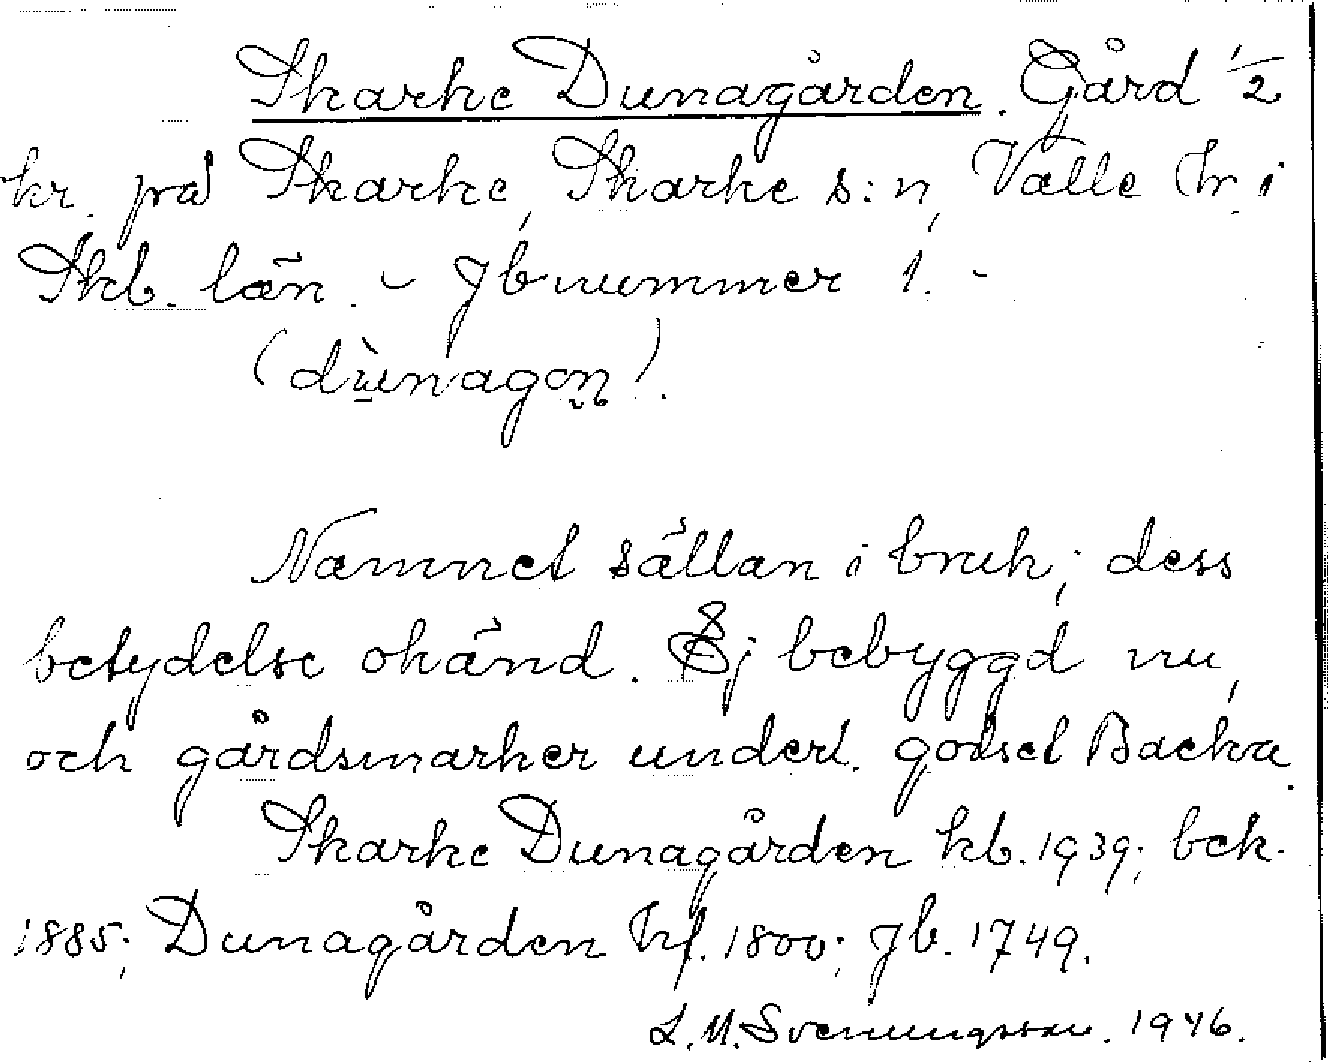 Skarke Dunagården. Gård 1/2
kr. på Skarke, Skarke s:n, Valle hr. i
Skb. län. - Jbnummer 1. -
(dùnagɷn̥).
Namnet sällan i bruk; dess
betydelse okänd. Ej bebyggd nu,
och gårdsmarker underl. godset Backa.
Skarke Dunagården kb. 1939; bek.
1885; Dunagården hf. 1800; Jb. 1749.
L. M. Svenungsson. 1946.